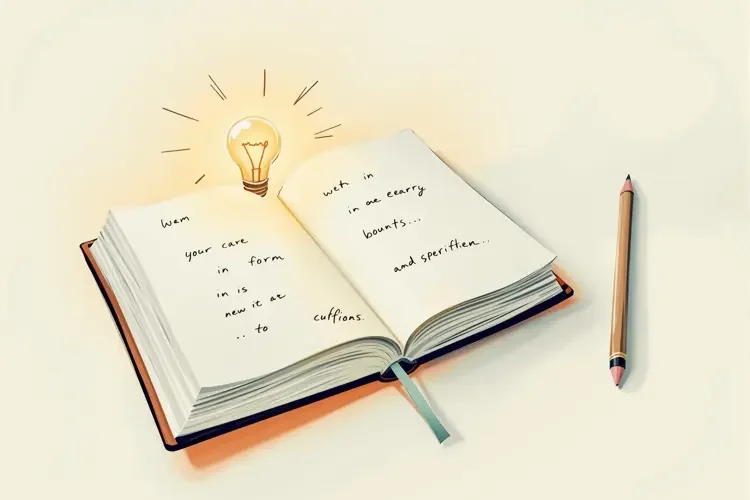 Wem
your care
in form
in is
new it at
.. to
cuffions.
weh in
in ae eearry
bounts...
and speriftien..